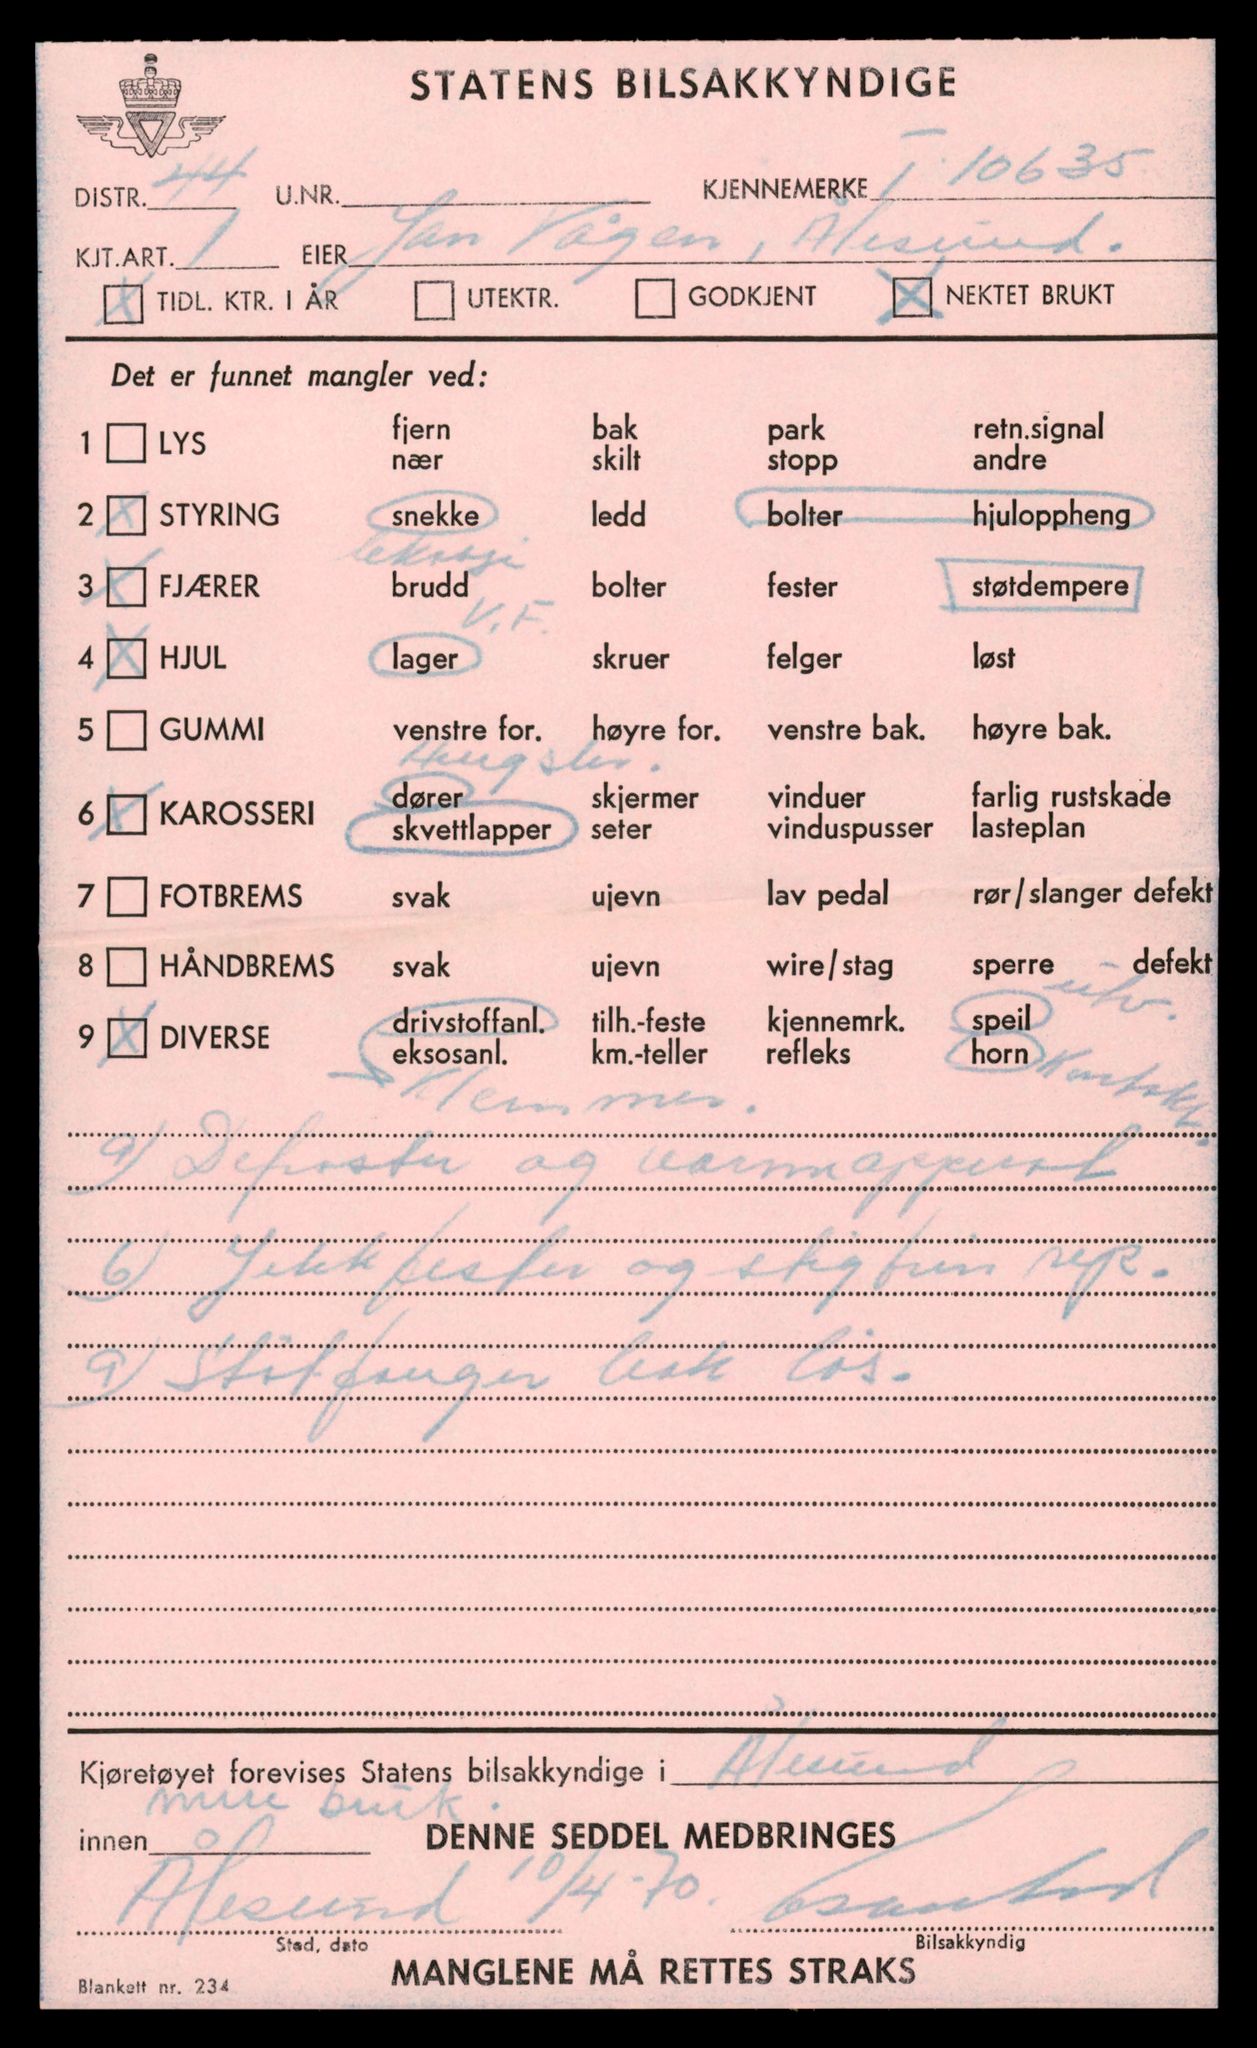 STATENS BILSAKKYNDIGE
DISTR. 44 U.NR. KJENNEMERKE T-10635
KJT.ART. 1 EIER Jan Vågen, Ålesund.
X TIDL. KTR. I ÅR UTEKTR. GODKJENT X NEKTET BRUKT
Det er funnet mangler ved:
1 LYS fjern bak park retn.signal
nær skilt stopp andre
2 X STYRING snekke ledd bolter hjuloppheng
3 X FJÆRER brudd bolter fester støtdempere
V.F.
4 X HJUL lager skruer felger løst
5 GUMMI venstre for. høyre for. venstre bak. høyre bak.
Hengsler.
6 X KAROSSERI dører skjermer vinduer farlig rustskade
skvettlapper seter vinduspusser lasteplan
7 FOTBREMS svak ujevn lav pedal rør/slanger defekt
8 HÅNDBREMS svak ujevn wire/stag sperre defekt
utv.
9 X DIVERSE drivstoffanl. tilh.-feste kjennemrk. speil
eksosanl. km.-teller refleks horn
Klemmer.
9) Defroster og varmapperat
6) Jekkfester og stigtrin rep.
9) Støtfanger bak løs.
Kjøretøyet forevises Statens bilsakkyndige i Ålesund
innen bruk.
DENNE SEDDEL MEDBRINGES
Ålesund 10/4-70.
Sted, dato Bilsakkyndig
MANGLENE MÅ RETTES STRAKS
Blankett nr. 234